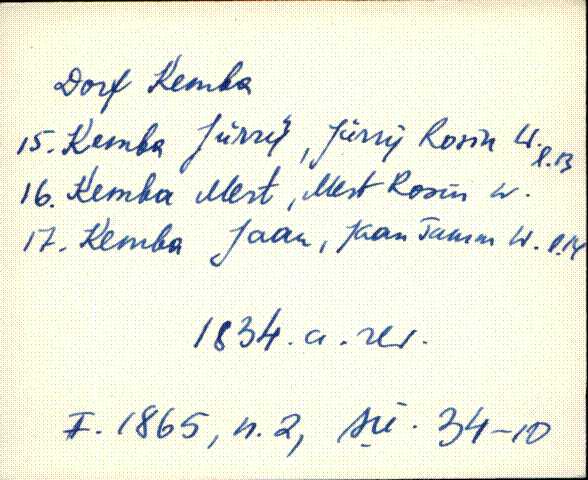 Dorf Kemba
15. Kemba Jürry, Jürry Rosin W. l.13
16. Kemba Mert, Mert Rosin W.
17. Kemba Jaan, Jaan Tamm W. l.14
1834. a. rev.
F. 1865, n. 2, sü. 34-10